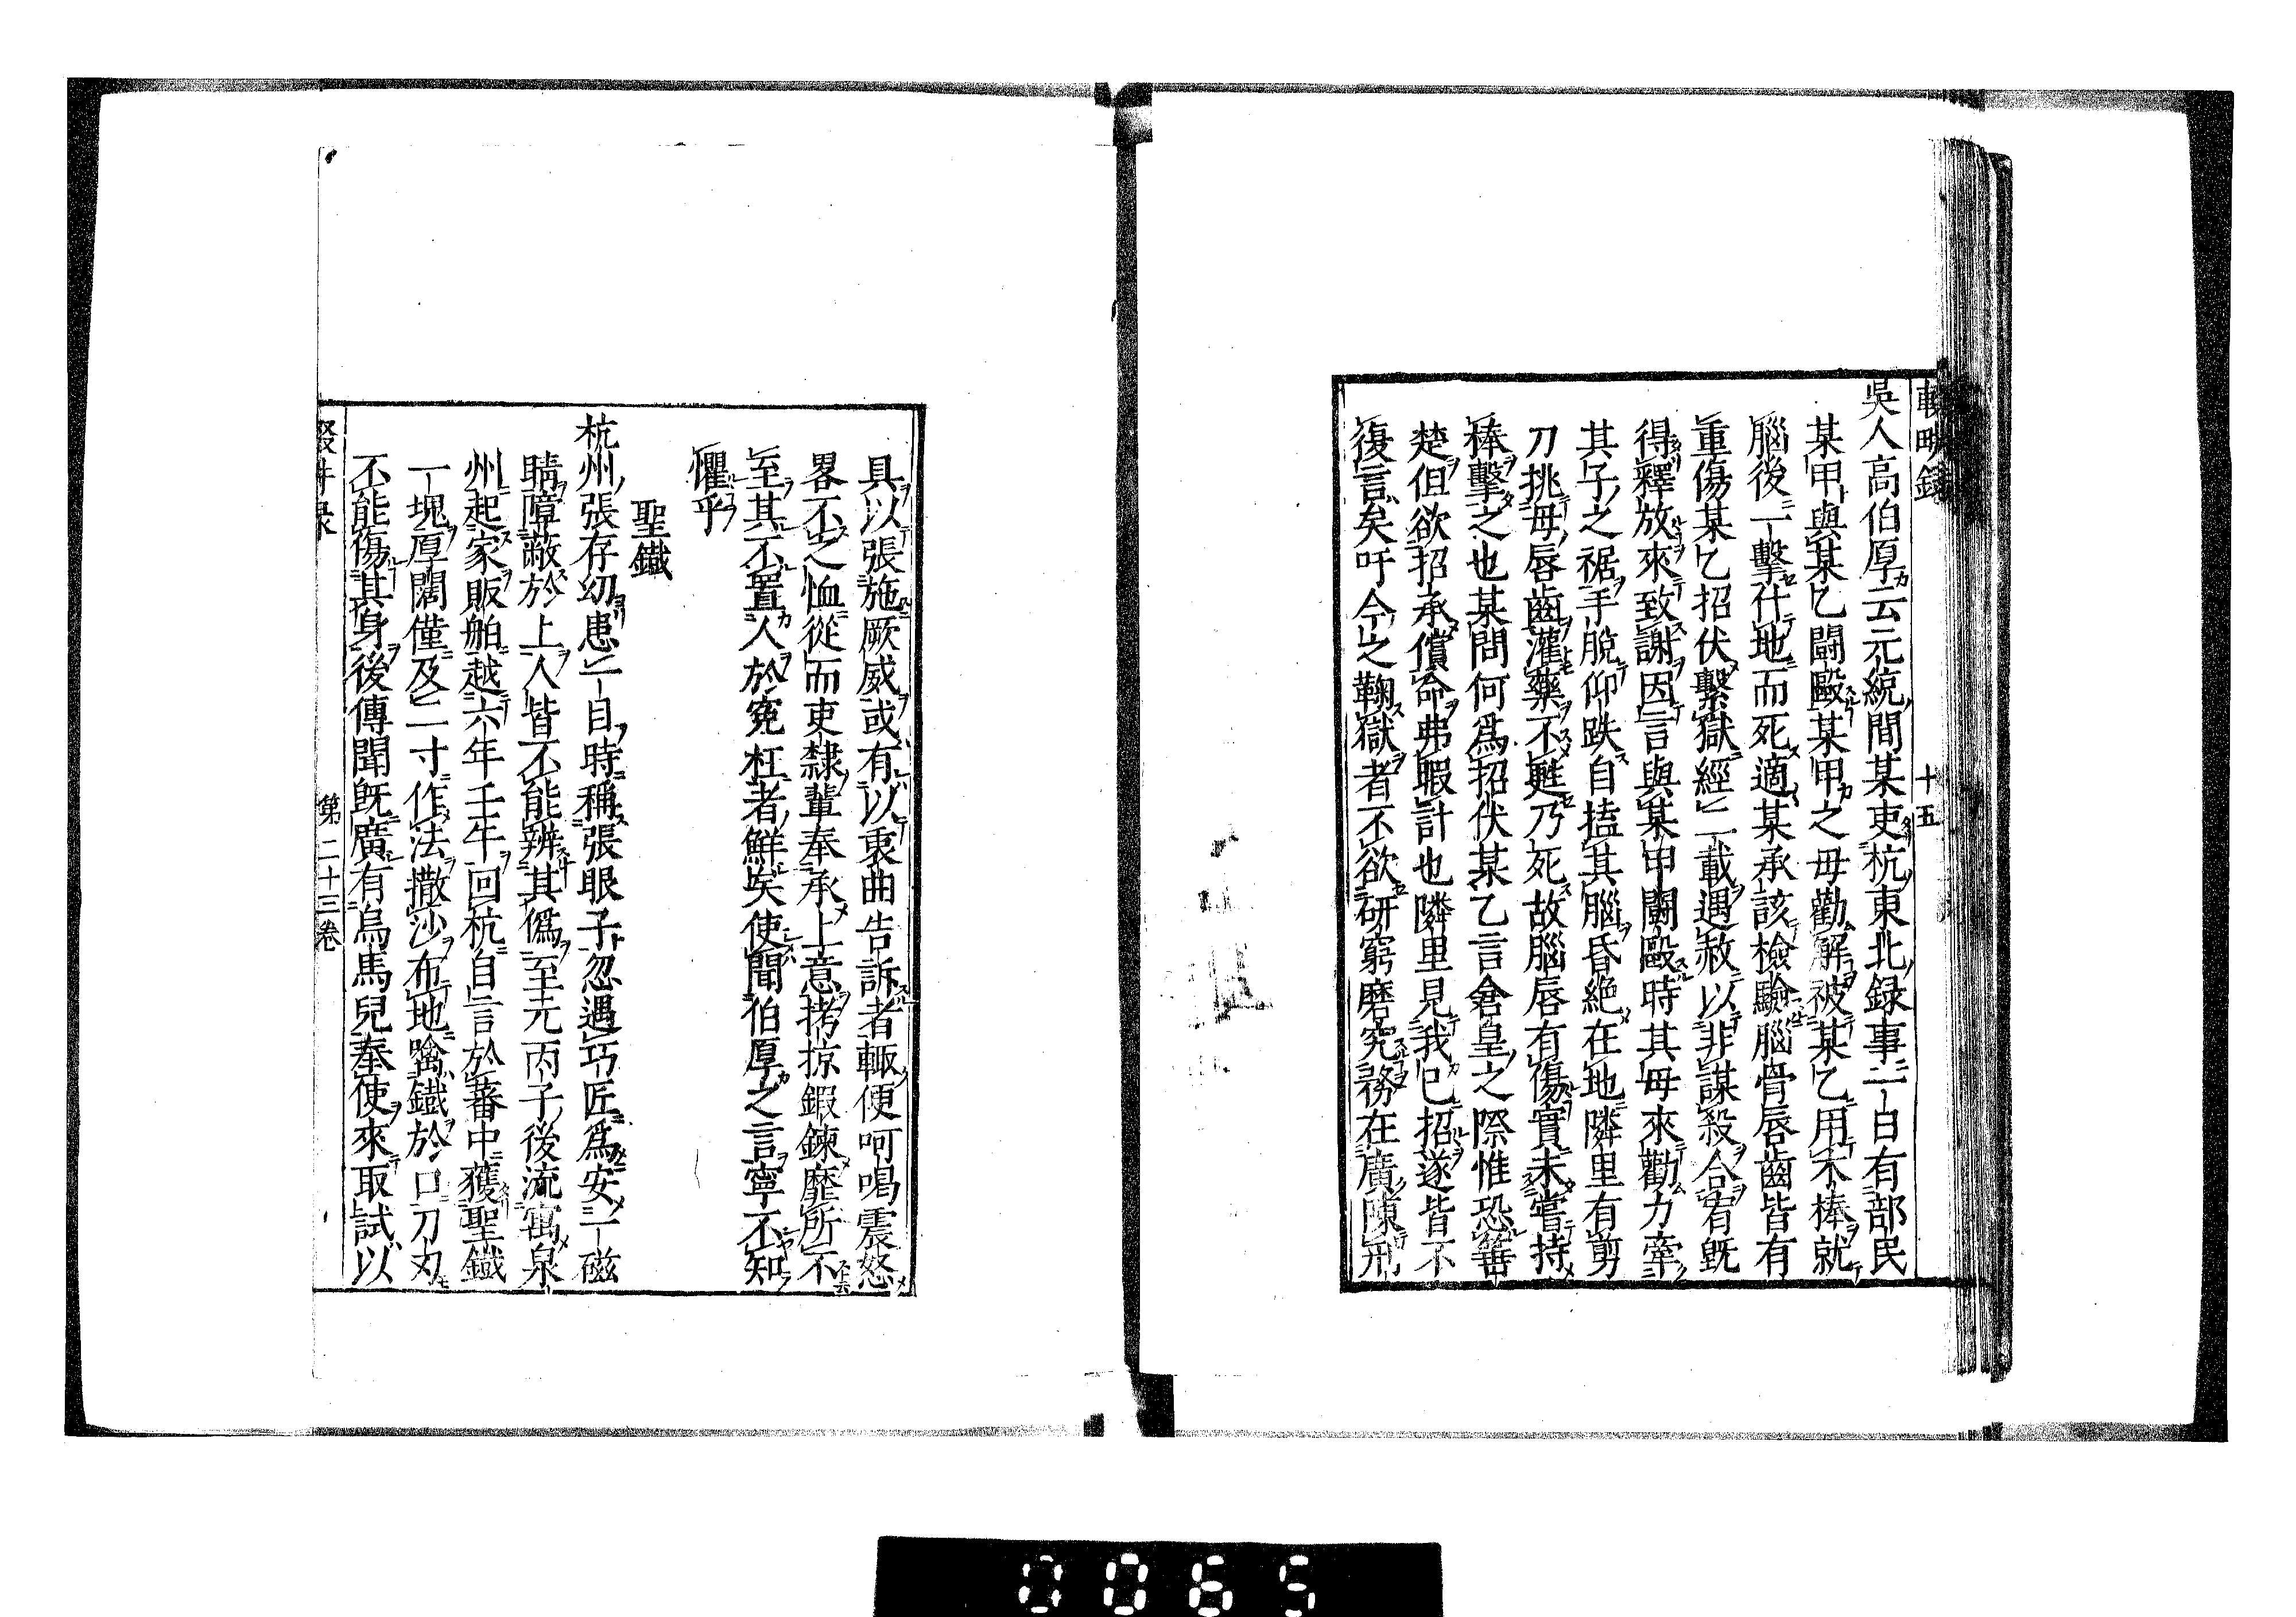 輟畊録
十五
吳人高伯厚云元統間某吏杭東北録事一日有部民
某甲與某乙鬪毆某甲之母勸解被某乙用木棒就
腦後一擊仆地而死適某承該檢驗腦骨唇齒皆有
重傷某乙招伏繫獄經二載遇赦以非謀殺合宥既
得釋放來致謝因言與某甲鬪毆時其母來勸力牽
其子之裾手脫仰跌自搕其腦昏絶在地隣里有剪
刀挑母唇齒灌藥不甦乃死故腦唇有傷實未嘗持
棒擊之也某問何爲招伏某乙言倉皇之際惟恐箠
楚但欲招承償命弗暇計也隣里見我已招遂皆不
復言矣吁今之鞫獄者不欲研窮磨究務在廣陳刑
具以張施厥威或有以衷曲告訴者輙便呵喝震怒
畧不之恤從而吏隸輩奉承上意拷掠鍛鍊靡所不
至其不置人於寃枉者鮮矣使聞伯厚之言寧不知
懼乎
聖鐵
杭州張存幼患一目時稱張眼子忽遇巧匠爲安一磁
睛障蔽於上人皆不能辨其僞至元丙子後流寓泉
州起家販舶越六年壬午回杭自言於蕃中獲聖鐵
一塊厚闊僅及二寸作法撒沙布地噙鐵於口刀刃
不能傷其身後傳聞既廣有烏馬兒奉使來取試以
第二十三卷
0065